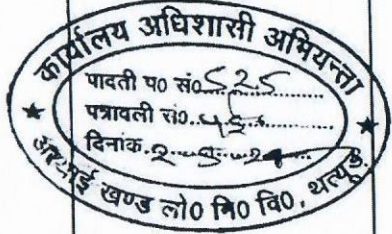 कार्यालय अधिशासी अभियन्ता
पावती प0 सं0 525
पत्रावली सं0
दिनांक. 2-5-24
अस्थाई खण्ड लो0 नि0 वि0, थत्यूड़